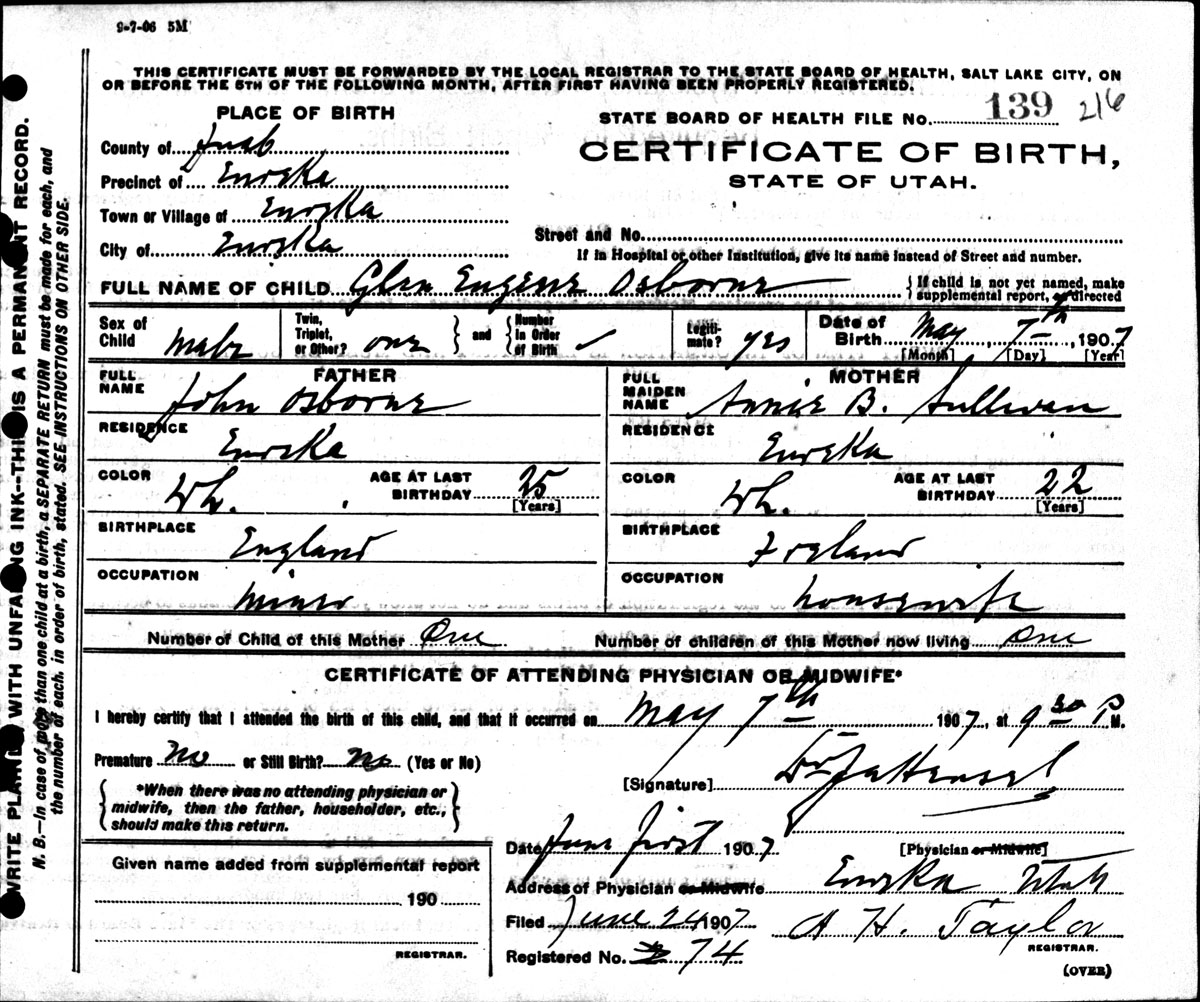 9-7-06 5M
THIS CERTIFICATE MUST BE FORWARDED BY THE LOCAL REGISTRAR TO THE STATE BOARD OF HEALTH, SALT LAKE CITY, ON
OR BEFORE THE 5TH OF THE FOLLOWING MONTH, AFTER FIRST HAVING BEEN PROPERLY REGISTERED.
WRITE PLAINLY WITH UNFADING INK--THIS IS A PERMANANT RECORD.
N. B.—In case of more than one child at a birth, a SEPARATE RETURN must be made for each, and
the number of each, in order of birth, stated. SEE INSTRUCTIONS ON OTHER SIDE.
PLACE OF BIRTH
STATE BOARD OF HEALTH FILE No. 139 216
County of Juab
CERTIFICATE OF BIRTH,
Precinct of Eureka
STATE OF UTAH.
Town or Village of Eureka
City of Eureka
Street and No.
If in Hospital or other Institution, give its name instead of Street and number.
FULL NAME OF CHILD Glen Eugene Osborne { If child is not yet named, make
supplemental report, as directed
Sex of Child male
Twin, Triplet, or Other? one } and { Number in Order of Birth ✓
Legitimate? yes
Date of Birth May 7th, 1907
[Month] [Day] [Year]
FATHER
FULL NAME John Osborne
MOTHER
FULL MAIDEN NAME Annie B. Sullivan
RESIDENCE Eureka
RESIDENCE Eureka
COLOR Wh. AGE AT LAST BIRTHDAY 25 [Years]
COLOR Wh. AGE AT LAST BIRTHDAY 22 [Years]
BIRTHPLACE England
BIRTHPLACE Ireland
OCCUPATION Miner
OCCUPATION housewife
Number of Child of this Mother One Number of children of this Mother now living One
CERTIFICATE OF ATTENDING PHYSICIAN OR MIDWIFE*
I hereby certify that I attended the birth of this child, and that it occurred on May 7th 1907, at 9 30 P M.
Premature No or Still Birth? no (Yes or No)
{ *When there was no attending physician or
midwife, then the father, householder, etc.,
should make this return. }
[Signature] Dr
Date June first 1907 [Physician or Midwife]
Given name added from supplemental report
190
REGISTRAR.
Address of Physician or Midwife Eureka Utah
Filed June 24 1907 A H. Taylor
REGISTRAR.
Registered No. 74
(OVER)